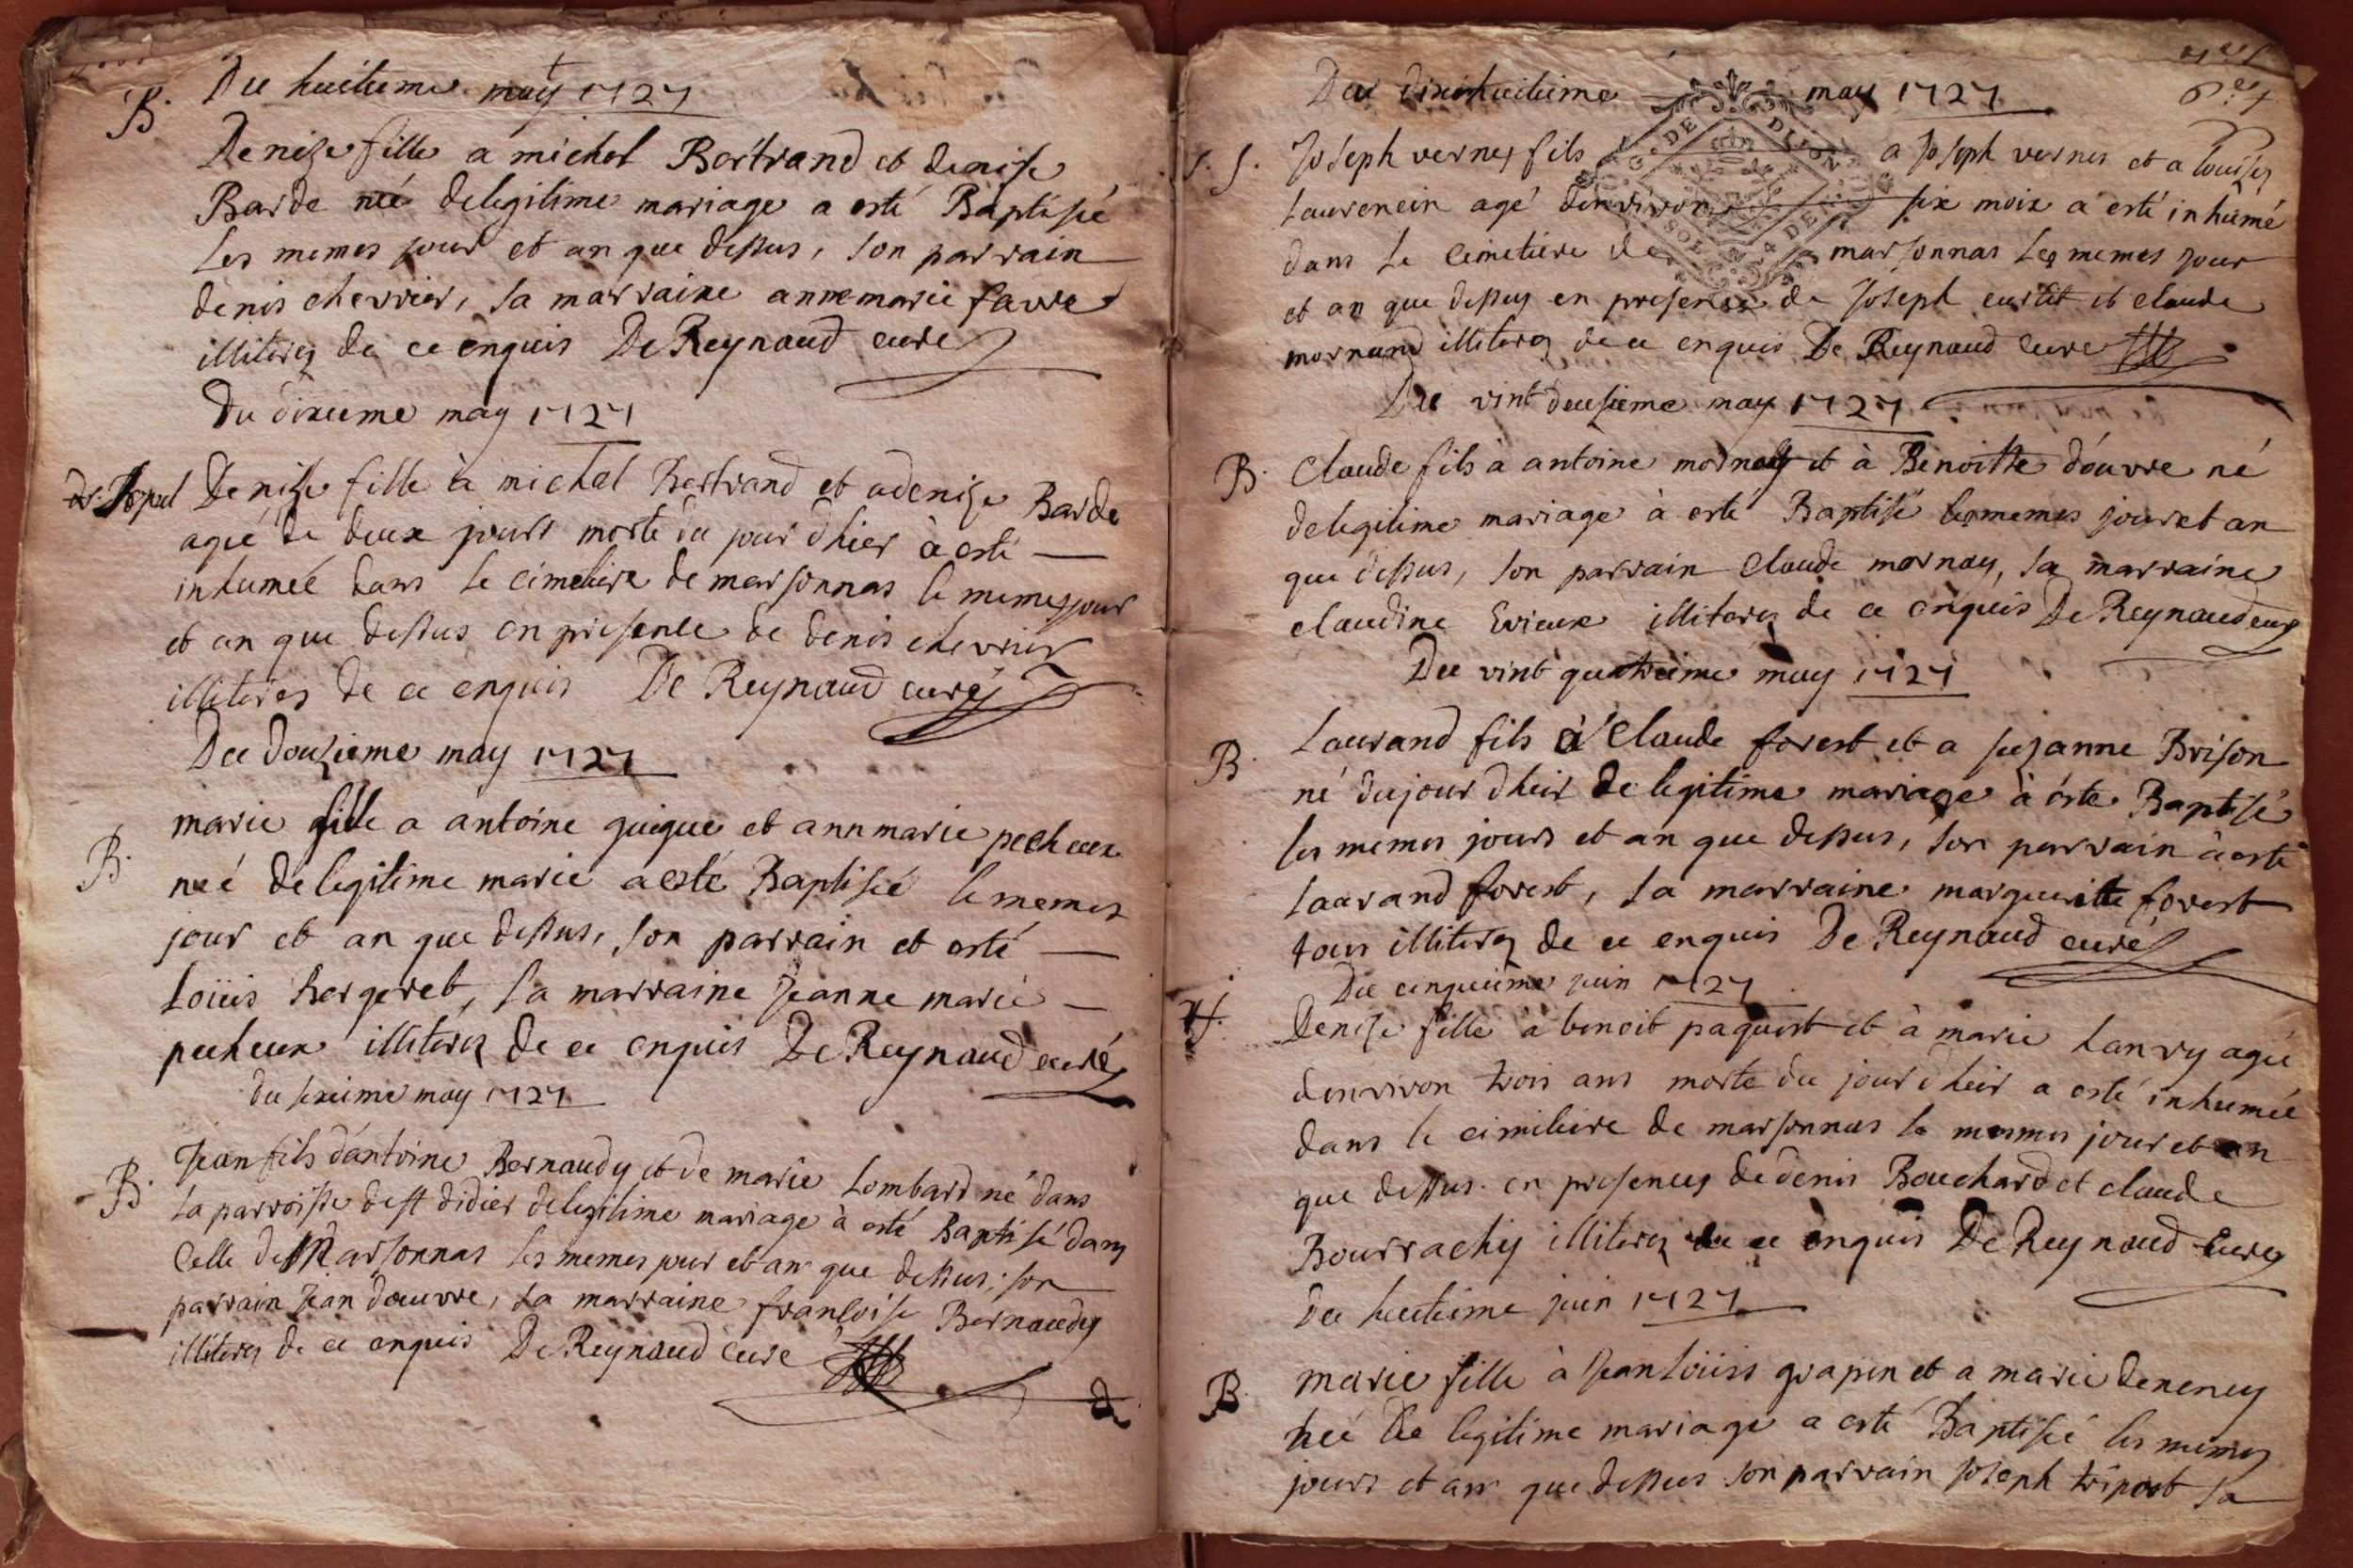 Du huitieme may 1727
B.
Denize fille a michel Bertrand et denise
Barde née delegitime mariage a esté Baptisée
Les memes jour et an que dessus, son parrain
denis chevrier, sa marraine annemarie favre
illiteres de ce enquis De Reynaud curé
Du dixieme may 1727
Denize fille à michel Bertrand et a denize Barde
agée de deux jours morte du jour dhier à esté
inhumée dans le cimetiere de marsonnas le memes jour
et an que dessus en presence de denis chevrier
illiteres de ce enquis De Reynaud curé
Du douzieme may 1727
B.
marie fille a antoine guigue et annmarie pecheux
neé delegitime marie a esté Baptisée le memes
jour et an que dessus, son parrain et esté
Loüis Bergeret, sa marraine Jeanne marie
pecheux illiteres de ce enquis De Reynaud curé
du sexieme may 1727
B.
Jean fils dantoine Bernaudy et de marie Lombard né dans
la parroisse de st didier delegitime mariage à esté Baptisé dans
Celle de Marsonnas les memes jour et an que dessus; son
parrain Jean douvre, sa marraine francoise Bernaudy
illiteres de ce enquis De Reynaud Curé
Du dixehuitieme may 1727
S.
Joseph vernes fils a Joseph vernes et a Louise
Laurencin agé denviron six moix a esté inhûmé
dans le Cimetiere de marsonnas les memes jour
et an que dessus en presence de Joseph curtit et claude
mornand illiteres de ce enquis De Reynaud Curé
G. DE DIJON
SOL 4 DEN
Du vint deusieme may 1727
B.
Claude fils à antoine mornay et à Benoitte douvre né
delegitime mariage à esté Baptisé les memes jour et an
que dessus, son parrain Claude mornay, sa marraine
claudine Evieux illiteres de ce enquis De Reynaud curé
Du vint quatrieme may 1727
B.
Laurand fils à Claude forest et a suzanne Brison
né dujour dheir de legitime mariage à éste Baptisé
les memes jours et an que dessus, son parrain à esté
Laurand forest, sa marraine marguerite forest
tous illiteres de ce enquis De Reynaud curé
Du cinquieme juin 1727
Denise fille à benoit paquet et à marie Lanvy agée
denviron trois ans morte du jour dheir a esté inhumée
dans le cimitiere de marsonnas le mesmes jour et an
que dessus en presences de denis Bouchard et claude
Bourrachy illiteres de ce enquis De Reynaud Curé
Du huitieme juin 1727
B.
marie fille à Jean Loüis grapin et a marie denency
née De legitime mariage a esté Baptisée les memes
jours et an que dessus son parrain Joseph tripost sa